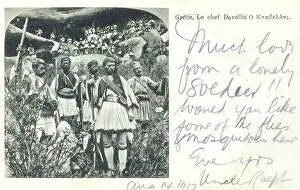 Grèce, Le chef Davellis Ὁ Νταβέλλης
Much love
from a lonely
Soldier!!
Would you like
some of the flies
& mosquitoes here
Ever yrs
Uncle Ralph
Aug 14. 1917